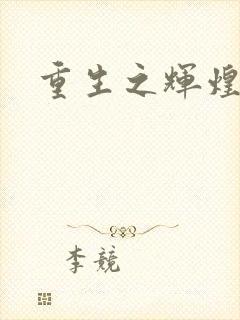 重生之辉煌
李競